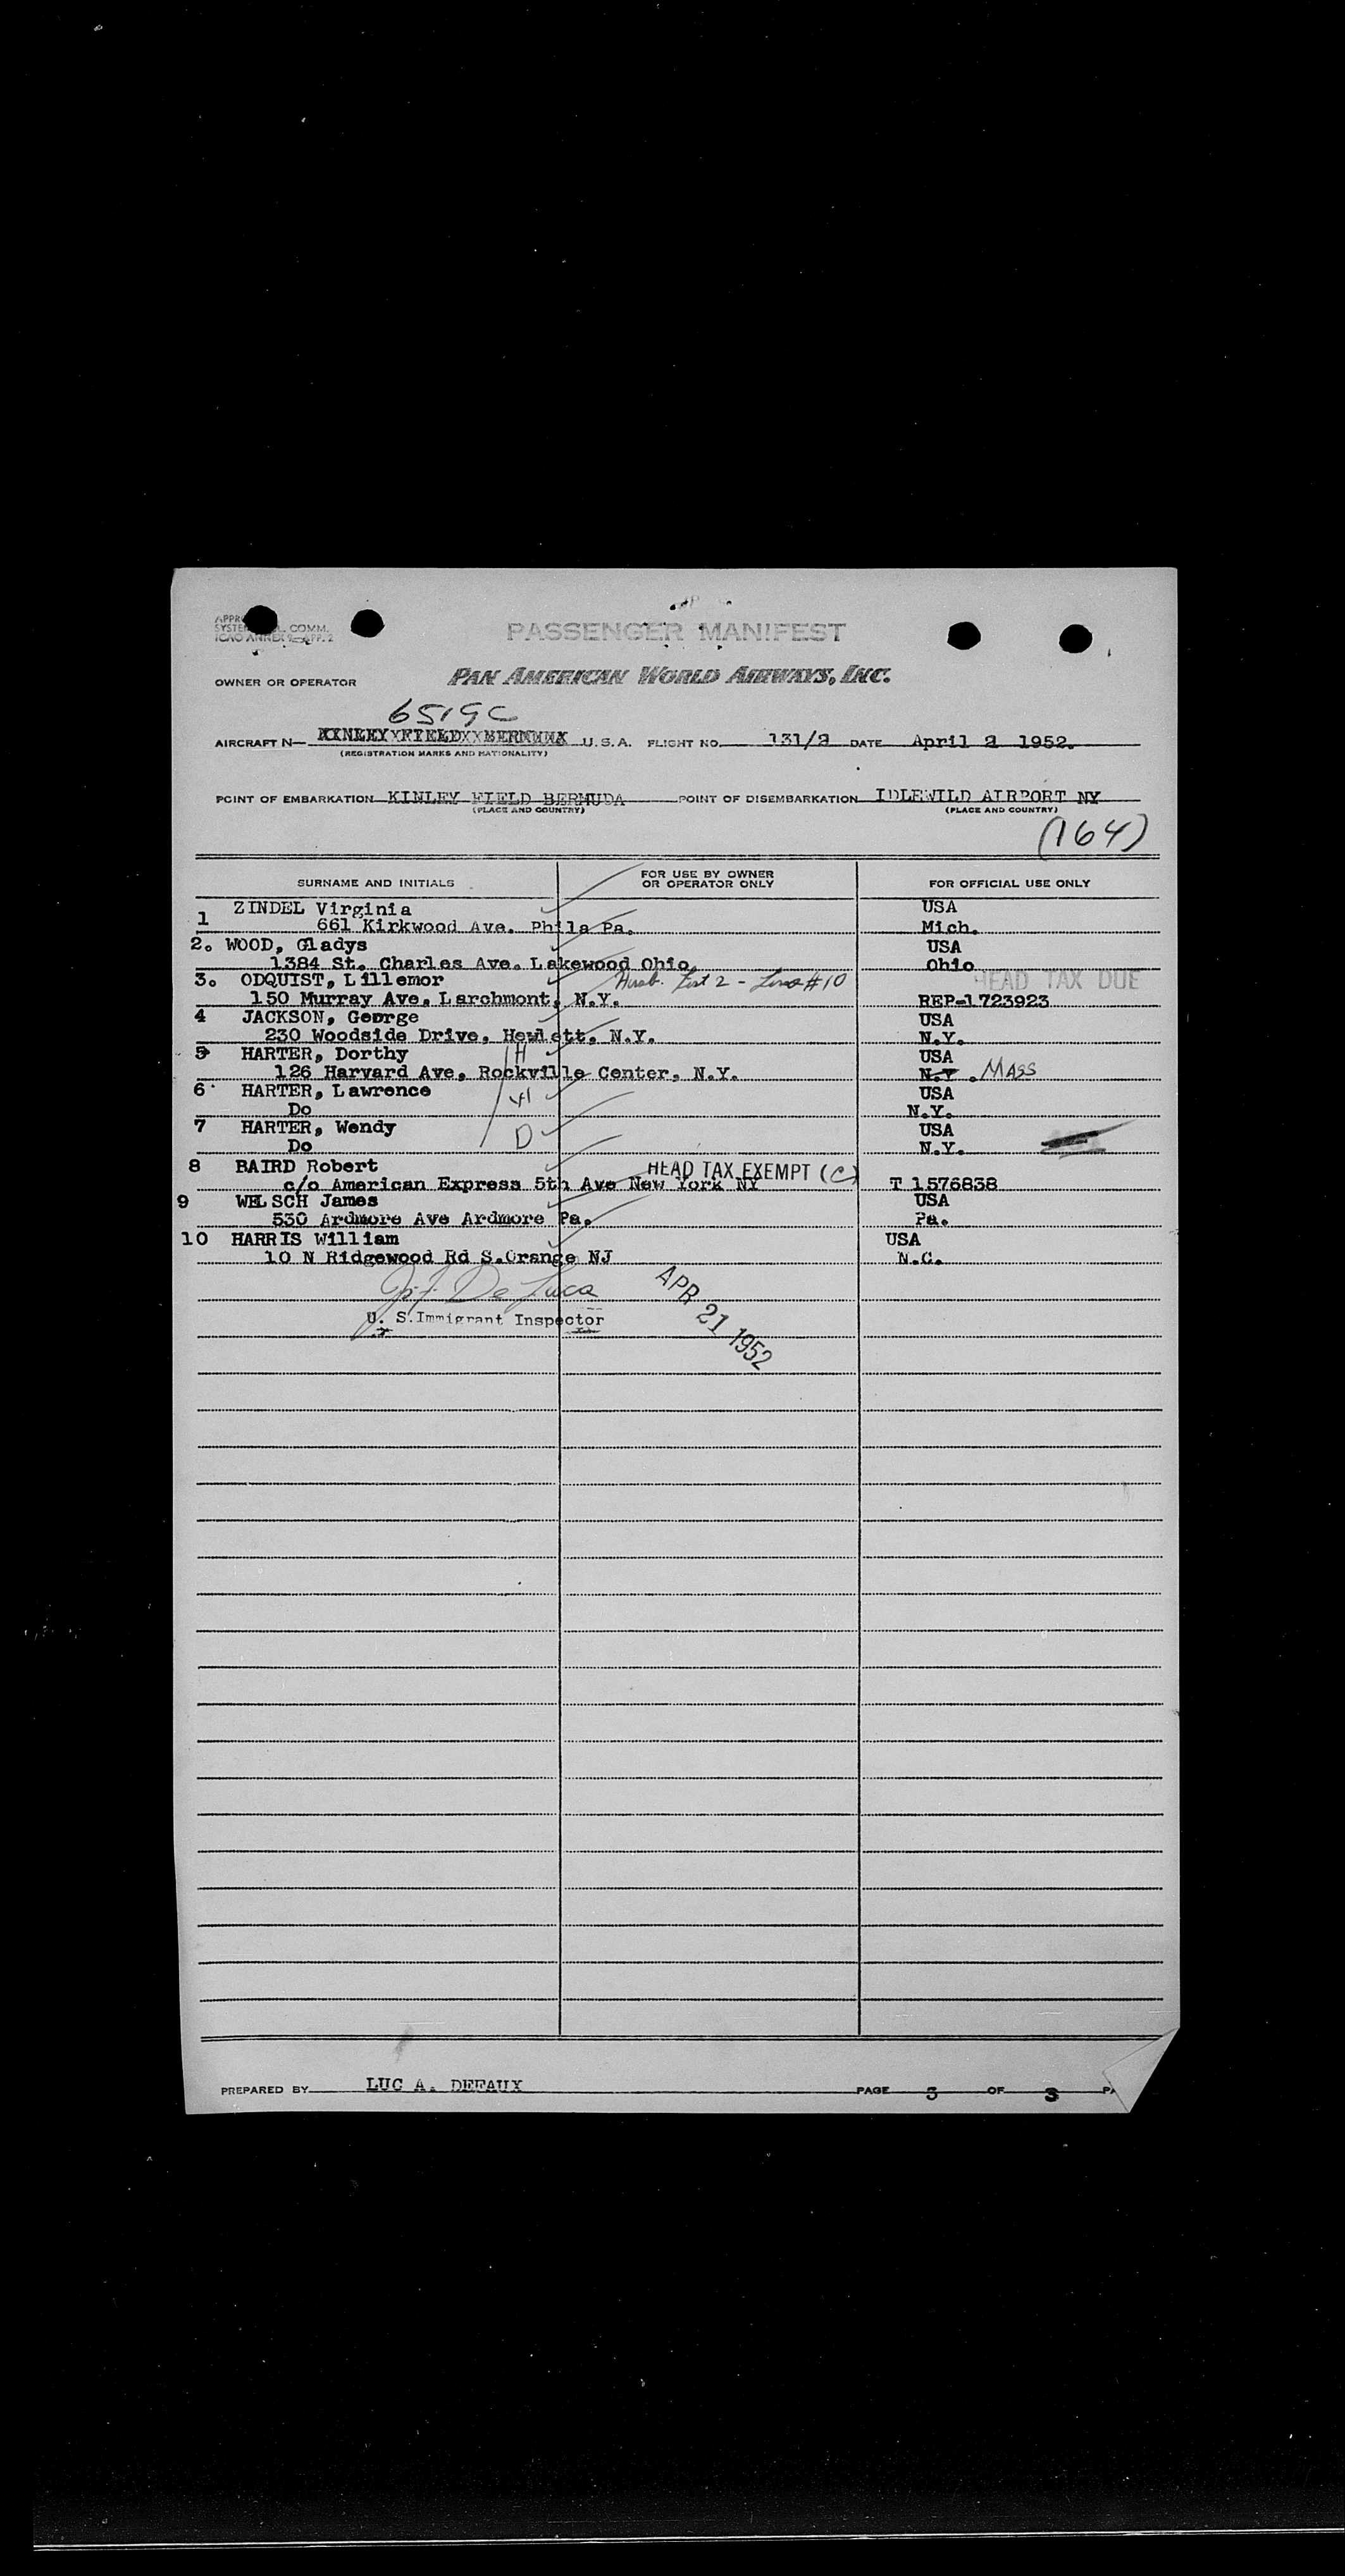 PASSENGER MANIFEST
COMM.
ICAO ANNEX 9 APP. 2
OWNER OR OPERATOR PAN AMERICAN WORLD AIRWAYS, INC.
6519C
AIRCRAFT N— U.S.A. FLIGHT NO. 131/2 DATE April 2 1952.
(REGISTRATION MARKS AND NATIONALITY)
POINT OF EMBARKATION KINLEY FIELD BERMUDA POINT OF DISEMBARKATION IDLEWILD AIRPORT NY
(PLACE AND COUNTRY) (PLACE AND COUNTRY)
(164)
SURNAME AND INITIALS FOR USE BY OWNER OR OPERATOR ONLY FOR OFFICIAL USE ONLY
1 ZINDEL Virginia USA
661 Kirkwood Ave. Phila Pa. Mich.
2. WOOD, Gladys USA
1384 St. Charles Ave. Lakewood Ohio Ohio
3. ODQUIST, Lillemor Husb. List 2 - Line #10 HEAD TAX DUE
150 Murray Ave. Larchmont, N.Y. REP-1723923
4 JACKSON, George USA
230 Woodside Drive, Hewlett, N.Y. N.Y.
5 HARTER, Dorthy H USA
126 Harvard Ave, Rockville Center, N.Y. N.Y. MASS
6 HARTER, Lawrence USA
Do N.Y.
7 HARTER, Wendy D USA
Do N.Y.
8 BAIRD Robert HEAD TAX EXEMPT (C)
c/o American Express 5th Ave New York NY T 1576838
9 WELSCH James USA
530 Ardmore Ave Ardmore Pa. Pa.
10 HARRIS William USA
10 N Ridgewood Rd S.Orange NJ N.C.
De Luca
U. S. Immigrant Inspector
APR 21 1952
PREPARED BY LUC A. DEFAUX PAGE 3 OF 3